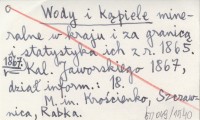 Wody i Kąpiele mine-
ralne w kraju i za granicą
i statystyka ich z r. 1865.
1867. Kal. Jaworskiego 1867,
dział inform.: 18.
M. in. Krościenko, Szczaw-
nica, Rabka.